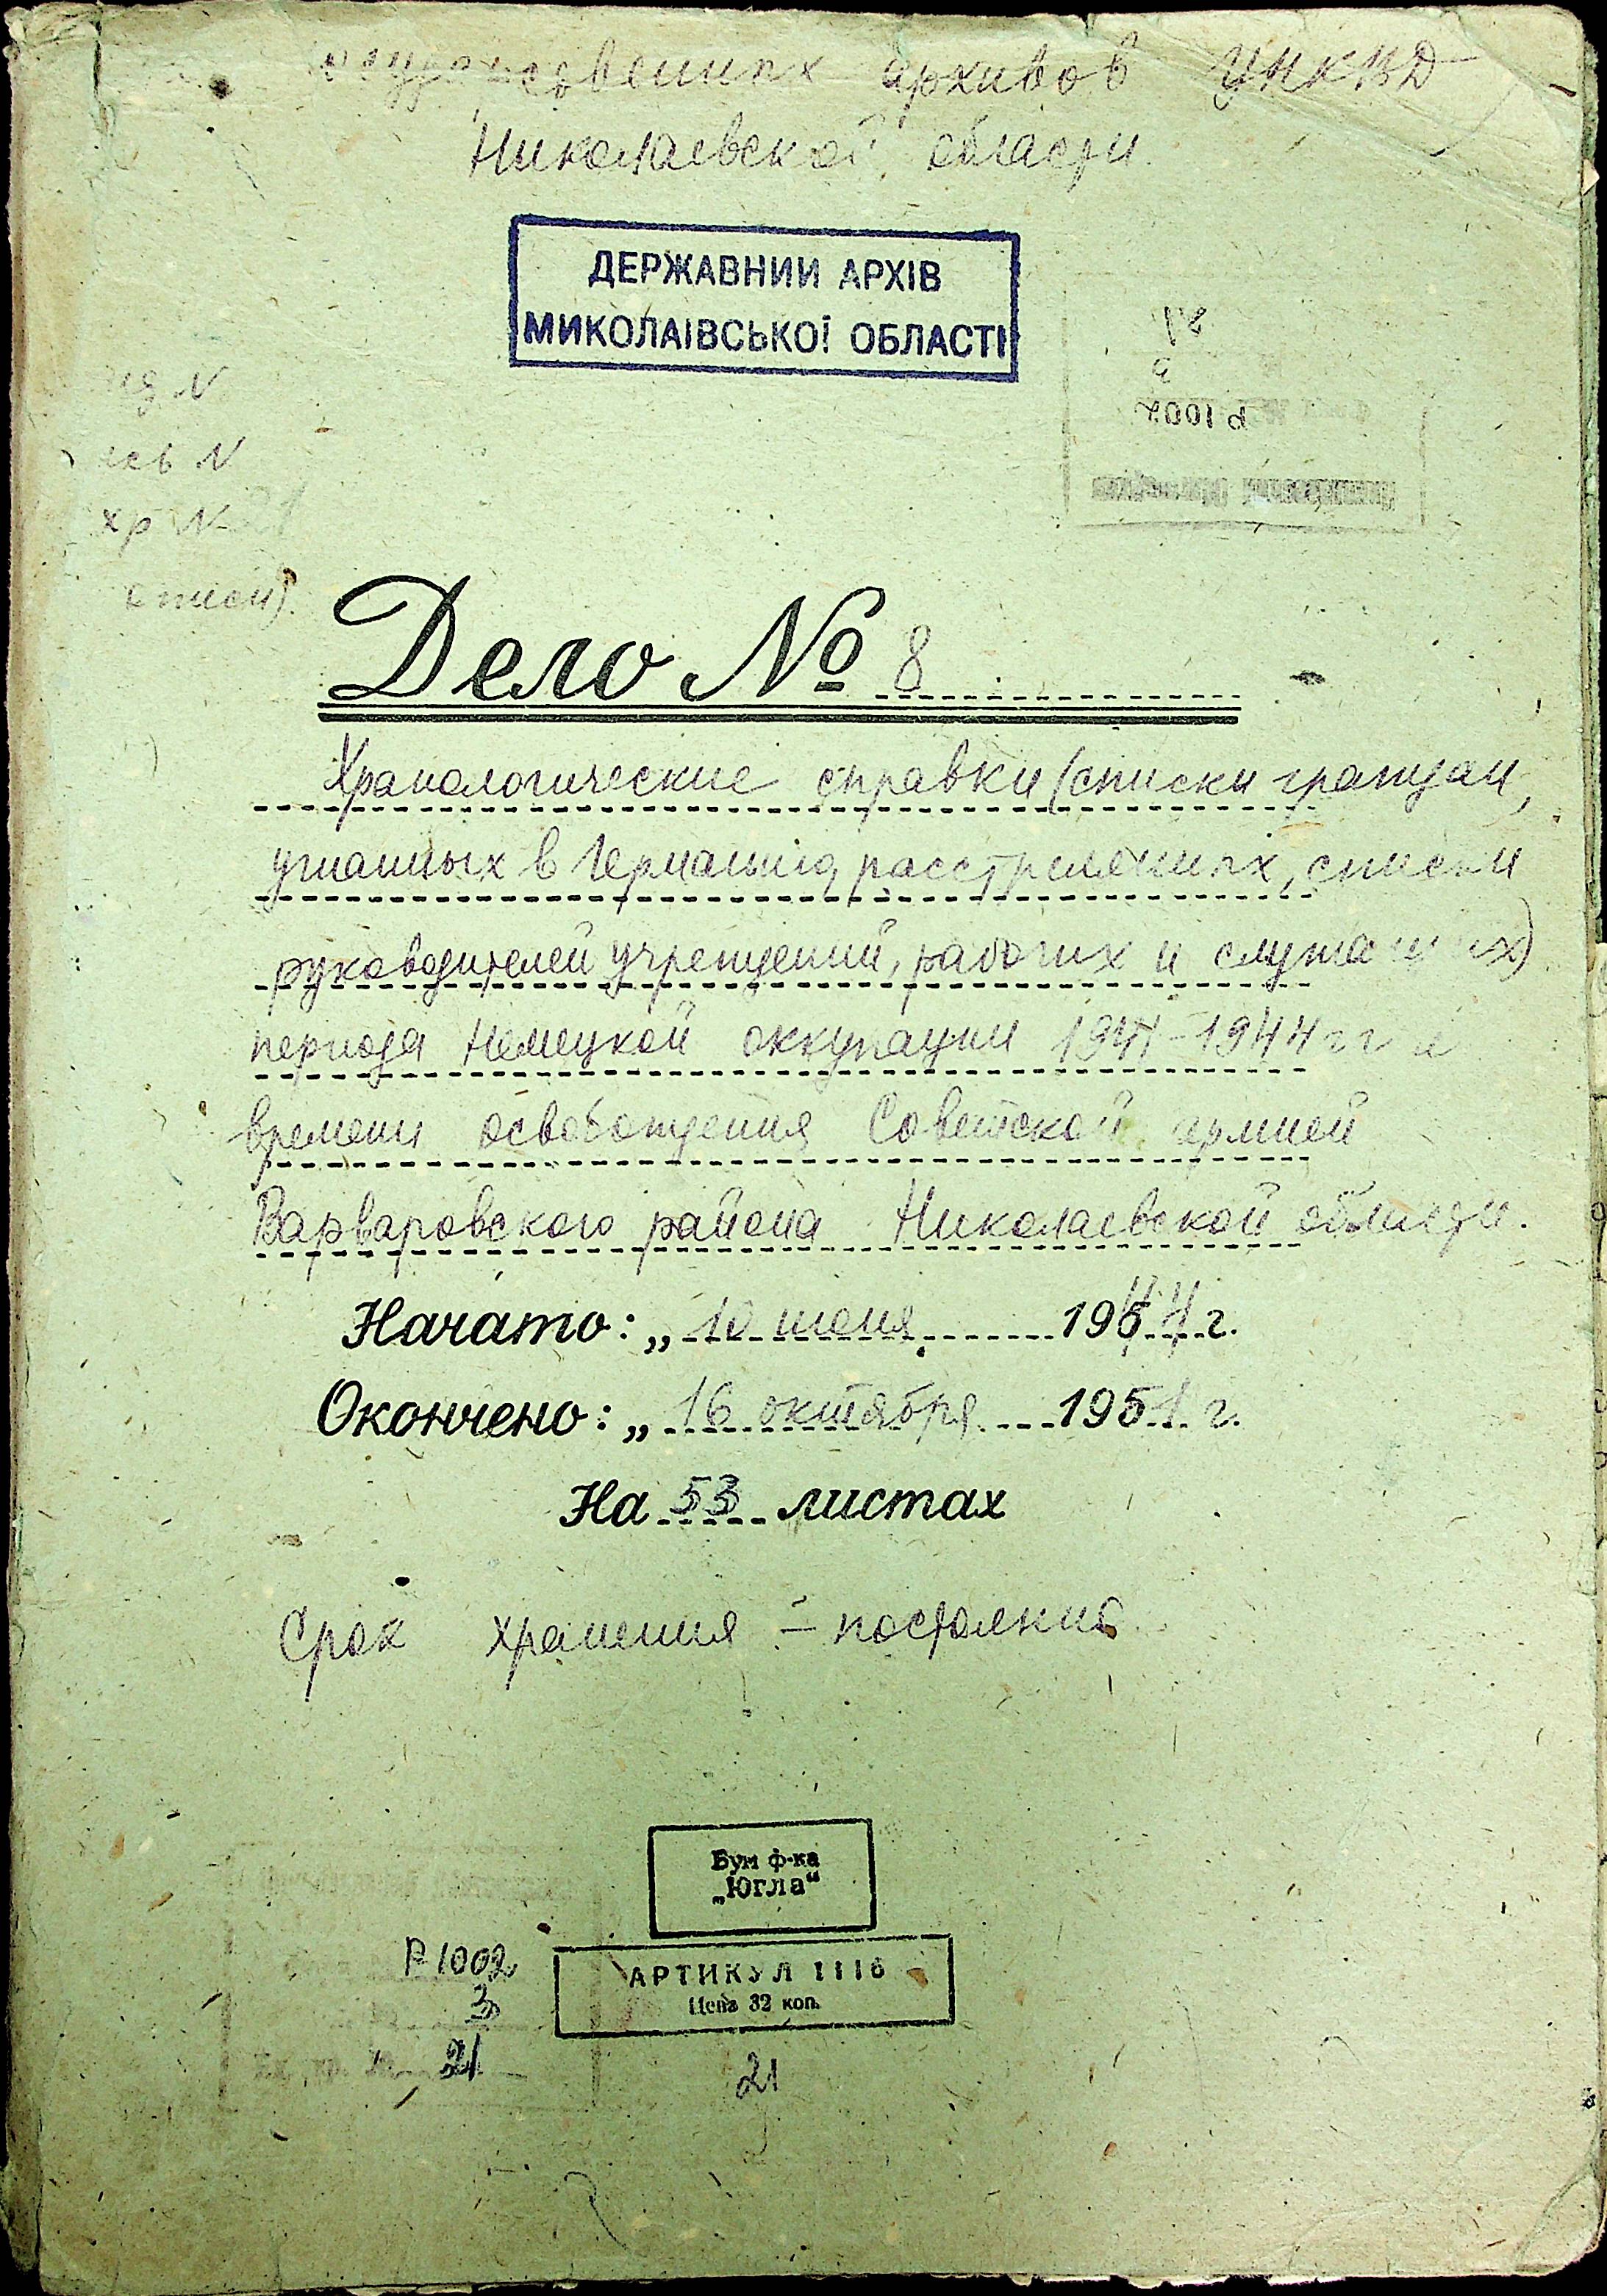 архивов УНКВД
Николаевской области.
ДЕРЖАВНИЙ АРХІВ
МИКОЛАЇВСЬКОЇ ОБЛАСТІ
21
3
Р1002
хр N 21
описи).
Дело № 8
Хронологические справки (списки граждан,
угнанных в Германию, расстрелянных, списки
руководителей учреждений, рабочих и служащих)
периода Немецкой оккупации 1941-1944 гг и
времени освобождения Советской армией
Варваровского района Николаевской области.
Начато: „ 10 июня 1944 г.
Окончено: „ 16 октября 1951 г.
На 53 листах
Срок хранения - постоянно
Бум ф-ка
„Югла“
Р1002
АРТИКУЛ 1116
3
Цена 32 коп.
21
21